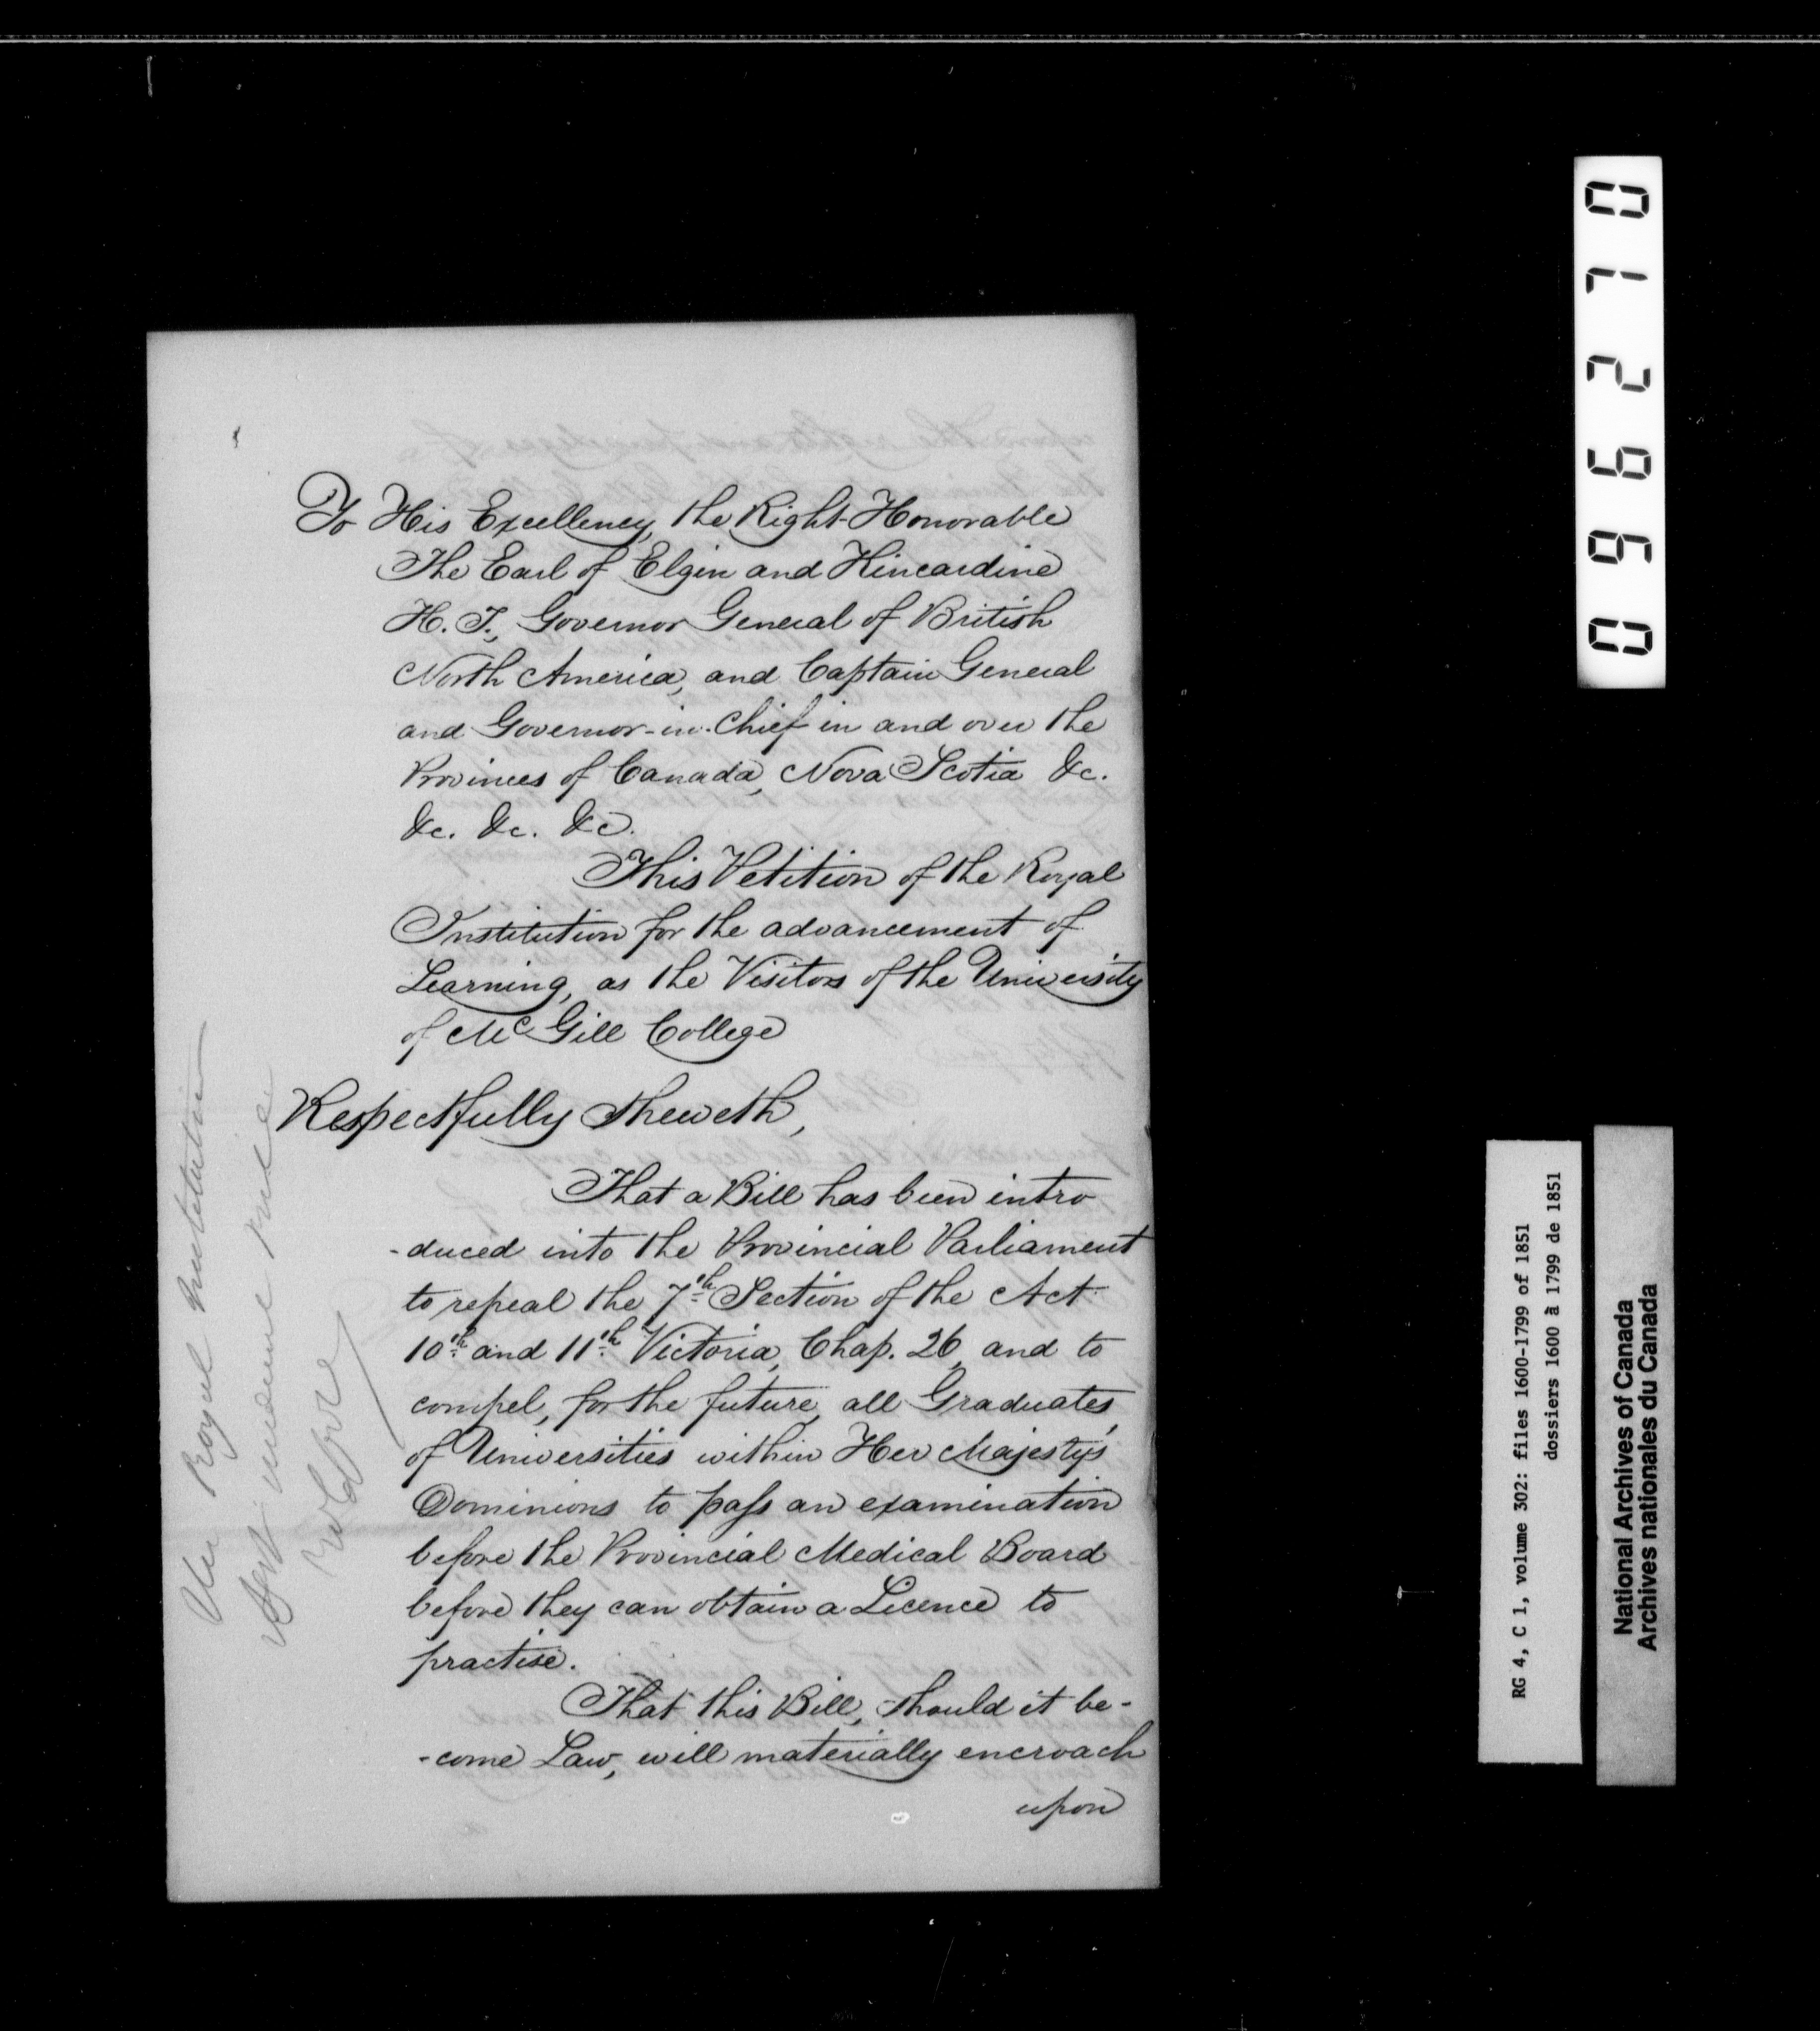 To His Excellency, the Right Honorable
The Earl of Elgin and Kincardine
K. T., Governor General of British
North America, and Captain General
and Governor-in-Chief in and over the
Provinces of Canada, Nova Scotia &c.
&c. &c. &c.
This Petition of the Royal
Institution for the advancement of
Learning, as the Visitors of the University
of McGill College
Respectfully sheweth,
That a Bill has been intro
-duced into the Provincial Parliament
to repeal the 7th Section of the Act
10th and 11th Victoria, Chap. 26, and to
compel, for the future, all Graduates,
of Universities within Her Majesty's
Dominions to pass an examination
before the Provincial Medical Board
before they can obtain a Licence to
practise.
That this Bill, should it be-
-come Law, will materially encroach
upon
Royal Institution
096210
RG 4, C 1, volume 302: files 1600-1799 of 1851
dossiers 1600 à 1799 de 1851
National Archives of Canada
Archives nationales du Canada